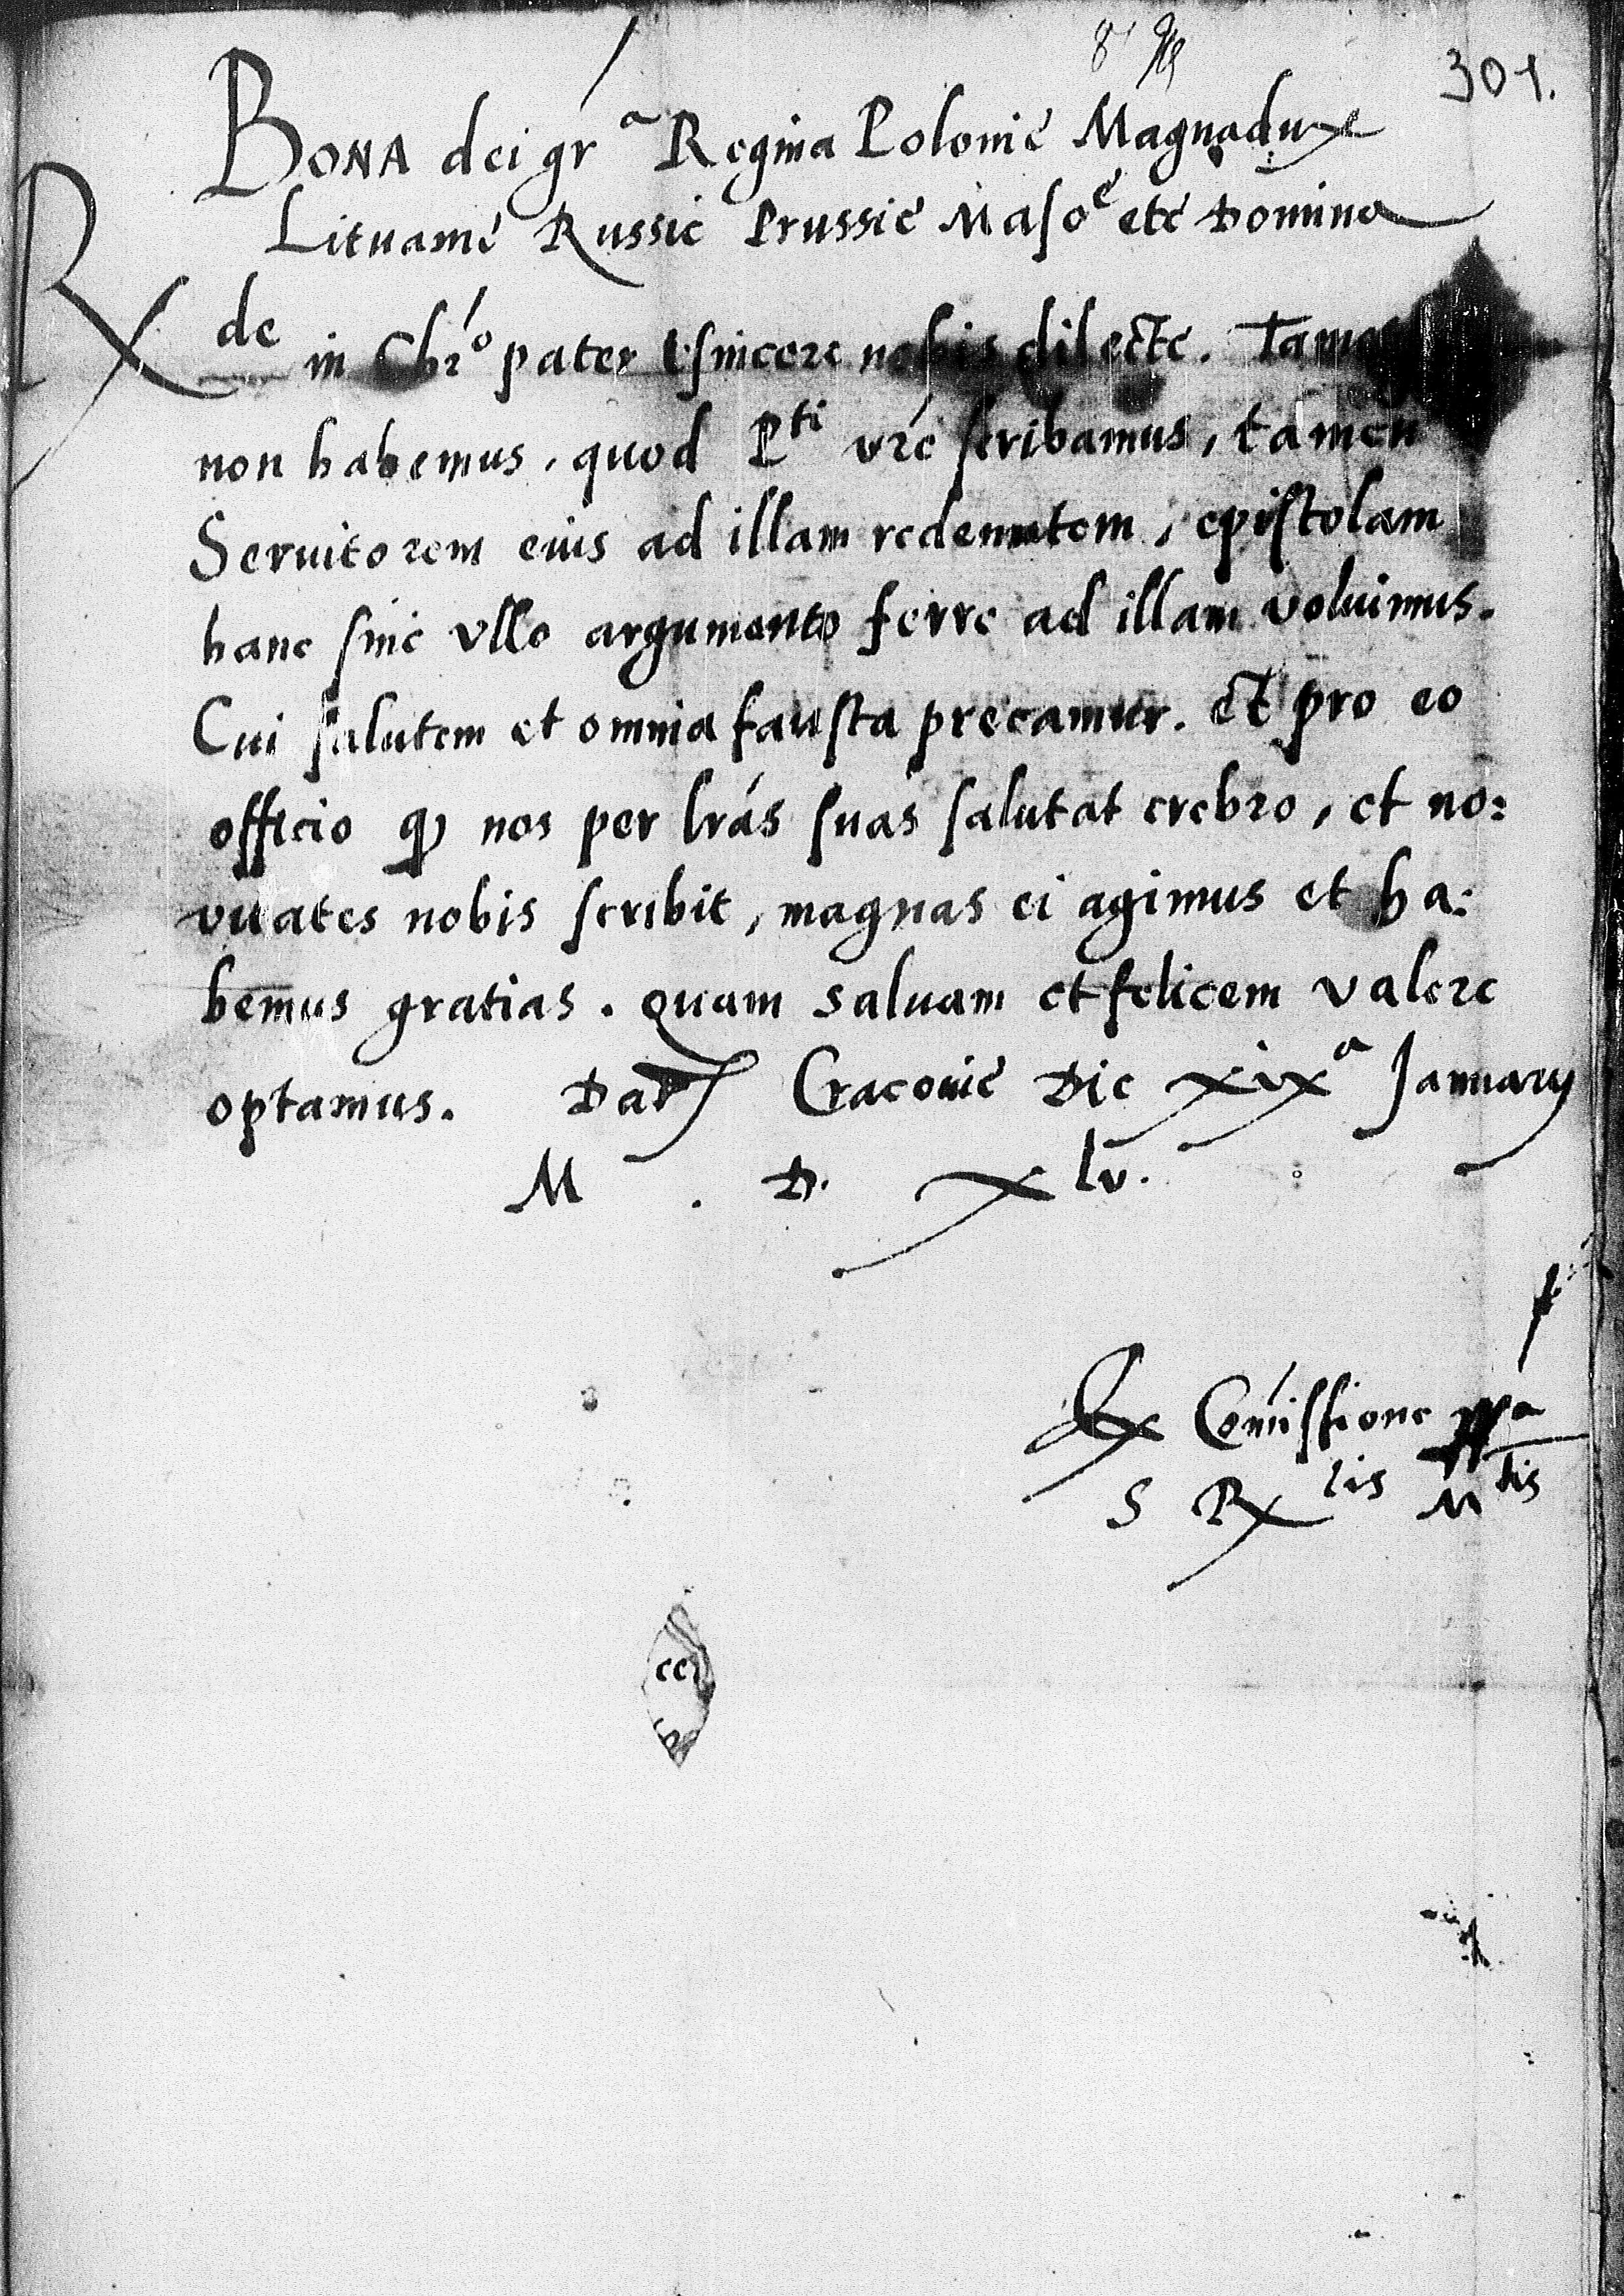 301.
BONA dei gra Regina Polonie Magnadux
Lituanie Russie Prussie Masoe etc Domina
Rde in Chro pater sincere nobis dilecte.
non habemus, quod Pti vre scribamus, tamen
Seruitorem eius ad illam redeuntem, epistolam
hanc sine vllo argumento ferre ad illam voluimus.
Cui salutem et omnia fausta precamur. Et pro eo
officio qd nos per lras suas salutat crebro, et no:
vitates nobis scribit, magnas ei agimus et ha:
bemus gratias. quam saluam et felicem valere
optamus. Dat Cracovie Die xixa Januarij
M. D. xlv.
Ex Comissione ppa
S Rx lis Mtis